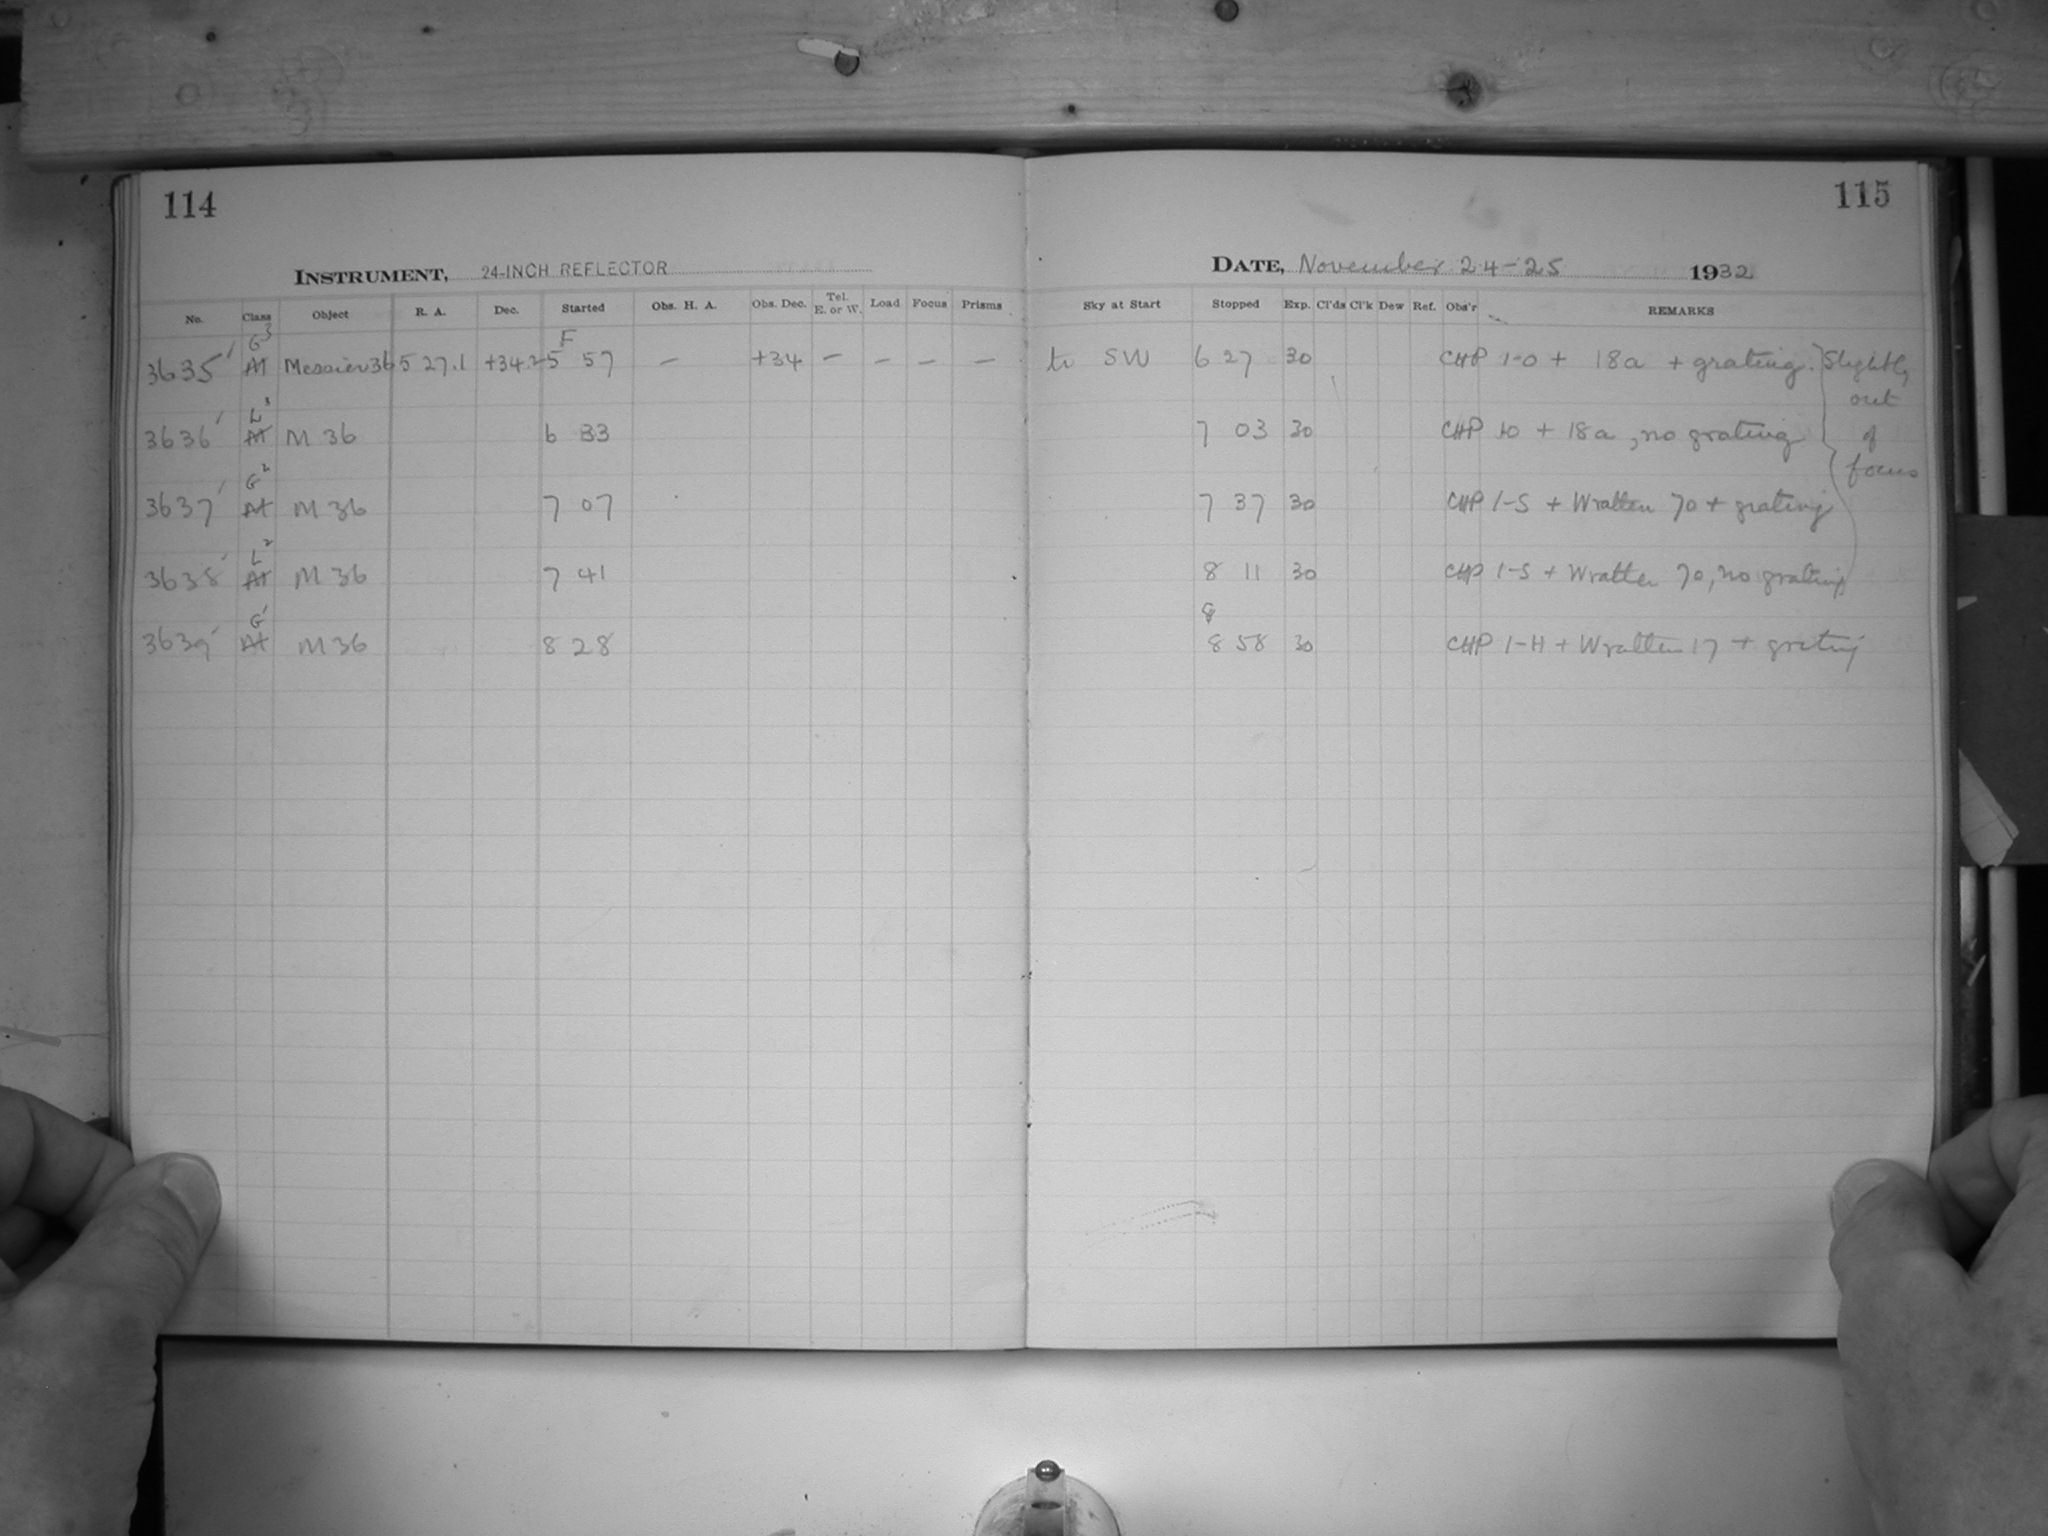 114
115
INSTRUMENT, 24-INCH REFLECTOR
DATE, November 24-25 1932
No. Class Object R. A. Dec. Started Obs. H. A. Obs. Dec. Tel. E. or W. Load Focus Prisms Sky at Start Stopped Exp. Cl'ds Cl'k Dew Ref. Obs'r REMARKS
G3 F
3635' Messier 36 5 27.1 +34.2 5 57 – +34 – – – – SW 6 27 30 CHP 1-0 + 18a + grating. Slightly out of focus
L3
3636' M 36 6 33 7 03 30 CHP 10 + 18a, no grating
G2
3637' M 36 7 07 7 37 30 CHP 1-S + Wratten 70 + grating
L2
3638' M 36 7 41 8 11 30 CHP 1-S + Wratten 70, no grating
G'
3639' M 36 8 28 8 58 30 CHP 1-H + Wratten 17 + grating